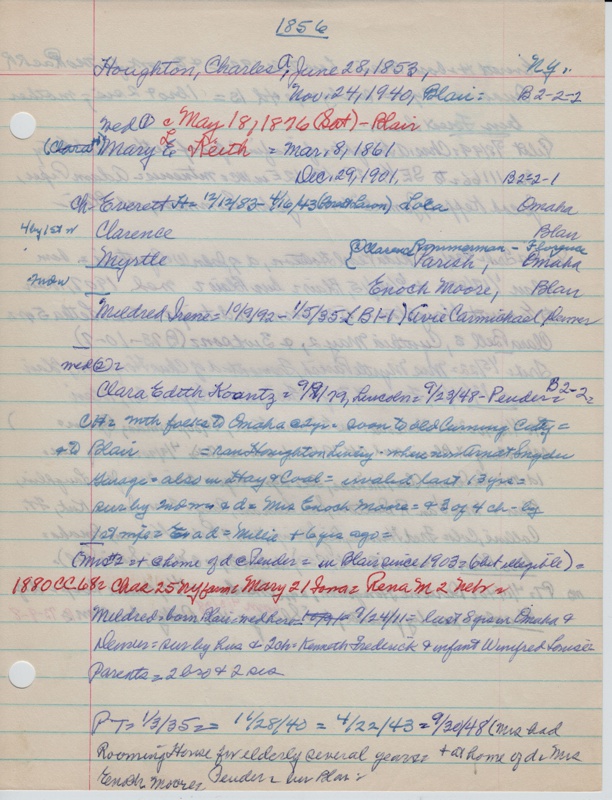 1856
Houghton, Charles A, June 28, 1853, N.Y.
Nov. 24, 1940, Blair = B2-2-2
med ① c May 18, 1876 (Sat) - Blair
(Clara) Mary E. Reith = Mar, 8, 1861
Dec, 29, 1901, B2-2-1
Ch- Everett A = 12/13/83 - 4/16/43 Lola Omaha
4 by 1st w Clarence Blair
Myrtle Clarence Zimmerman - Florence
Parish, Omaha
2nd w Enoch Moore, Blair
Mildred Irene = 10/9/92 - 1/5/35 (B1-1) Carmichael
med ② =
Clara Edith Koontz = 9/9/79, Lincoln = 9/23/48 - Pender = B2-2=
CH = with folks to Omaha = soon to old Cuming City =
+ to Blair = ran Houghton Livery - where now Ernest Snyder
Garage = also in Hay & Coal = invalid last 13 yrs =
sur by 2nd w & d = Mrs Enoch Moore = & 3 of 4 ch - by
1st = d = + 6 yrs ago =
(Mrs #2 = + c home of d c Pender = in Blair since 1903 = (obit illegible) =
1880 CC 68 = Chas 25 NY farm = Mary 21 Iowa = Rena M 2 Nebr =
Mildred = born Blair = med here 9/24/11 = last 8 yrs in Omaha &
Denver = sur by hus & 2 ch = Kenneth Frederick & infant Winifred Louise
Parents = 2 bro & 2 sis
PT = 1/3/35 = = 11/28/40 = 4/22/43 = 9/30/48 (Mrs had
Rooming House for elderly several years = + at home of d. Mrs
Enoch Moore, Pender = bur Blair =